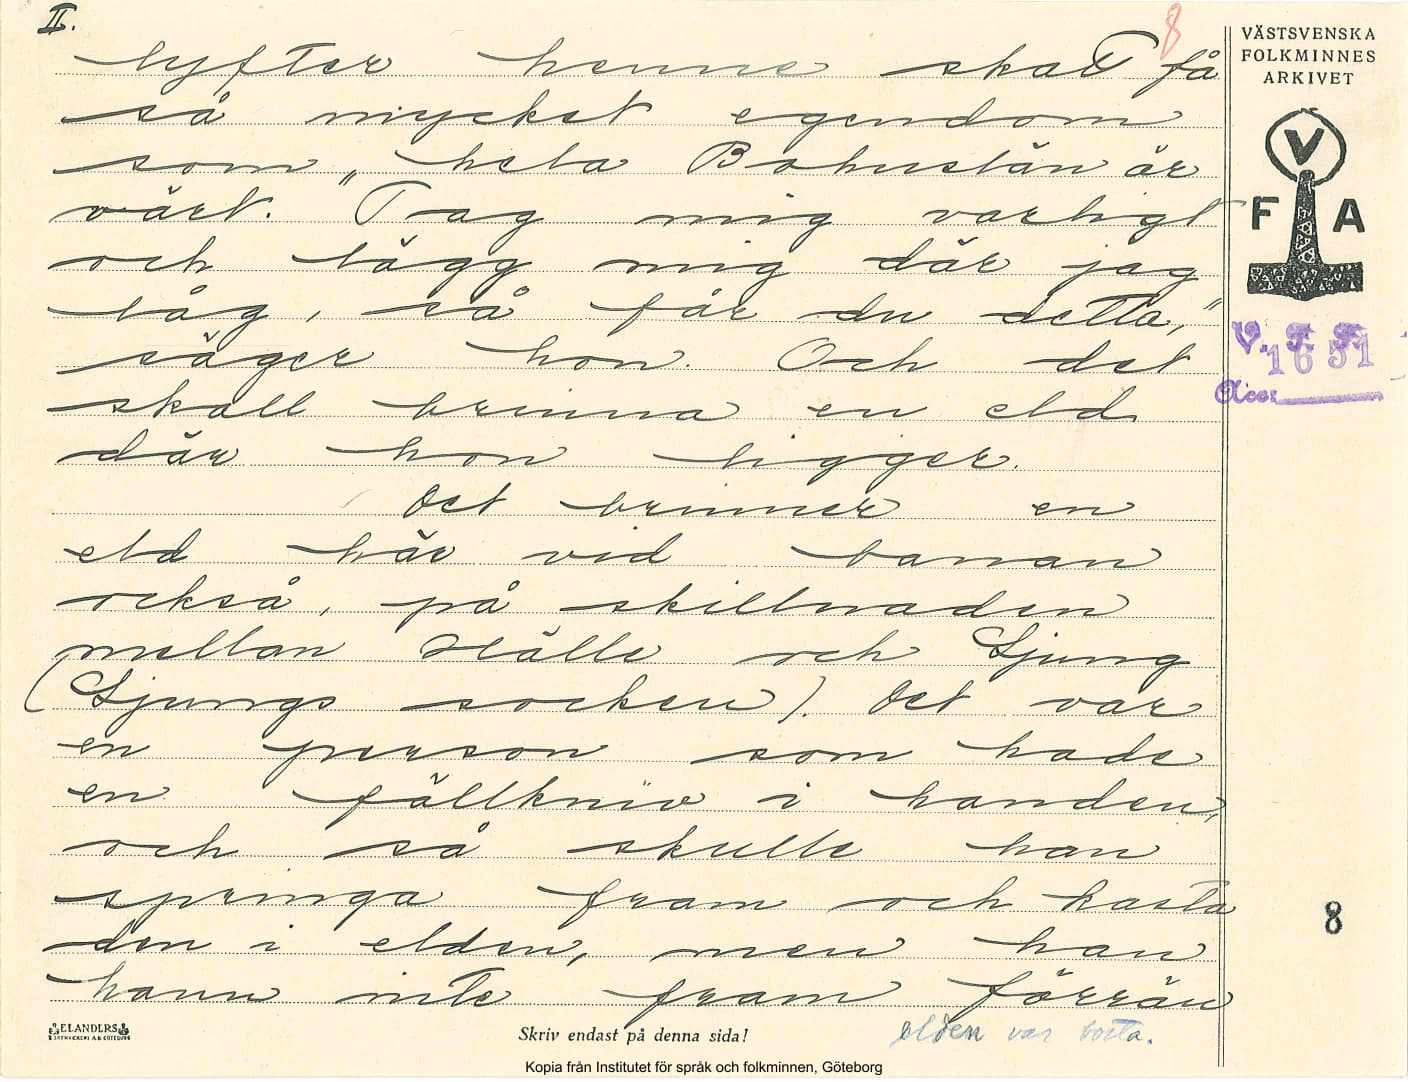 II.
8
lyfter henne skat få
så mycket egendom
som „hela Bohuslän är
värt. Tag mig varligt
och lägg mig där jag
låg, så får du detta,”
säger hon. Och det
skall brinna en eld
där hon ligger.
Det brinner en
eld här vid banan
också, på skillnaden
mellan Hälle och Ljung
(Ljungs socken). Det var
en person som hade
en fällkniv i handen,
och så skulle han
springa fram och kasta
den i elden, men han
hann inte fram förrän
elden var borta.
VÄSTSVENSKA
FOLKMINNES
ARKIVET
V
F A
V. F. F.
1651
Acc:
8
ELANDERS
Skriv endast på denna sida!
Kopia från Institutet för språk och folkminnen, Göteborg